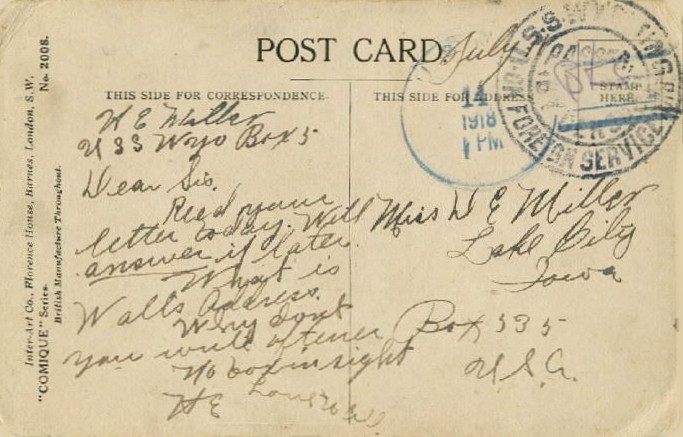 POST CARD.
THIS SIDE FOR CORRESPONDENCE.
THIS SIDE FOR ADDRESS
July
14
1918
PM
PASSED
FOREIGN SERVICE
STAMP
HERE
H E Miller
USS Wyo Box 5
Dear Sis.
Recd your
letter today. Will
answer it later.
What is
Walls Address.
Why dont
you write oftener
No box in sight
H E
Miss D E Miller
Lake City
Iowa
Box 535
U.S.A.
Inter-Art Co., Florence House, Barnes, London, S.W.
"COMIQUE" Series. No. 2008.
British Manufacture Throughout.